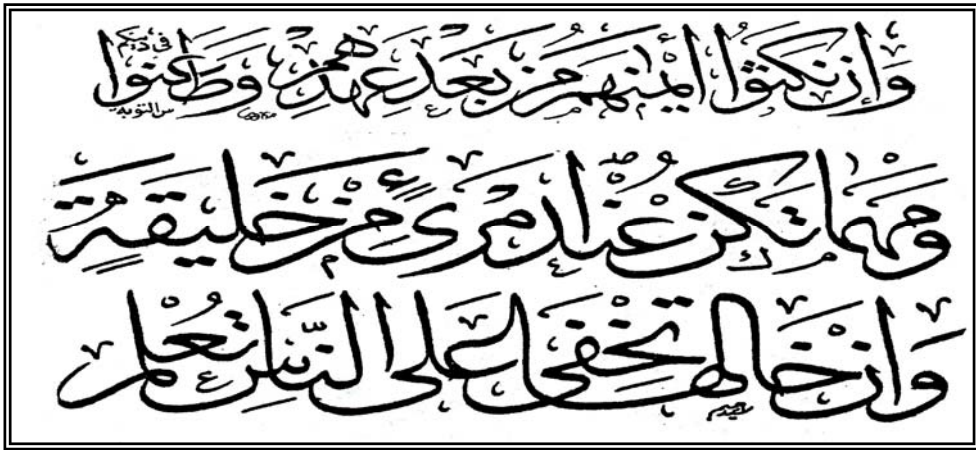 وَإِن نَّكَثُوٓا۟ أَيْمَٰنَهُم مِّنۢ بَعْدِ عَهْدِهِمْ وَطَعَنُوا۟ فى دينكم
س التوبة
وَمَهْمَا تَكُنْ عِنْدَ امْرِئٍ مِنْ خَلِيقَةٍ
وَإِنْ خَالَهَا تَخْفَى عَلَى النَّاسِ تُعْلَمِ